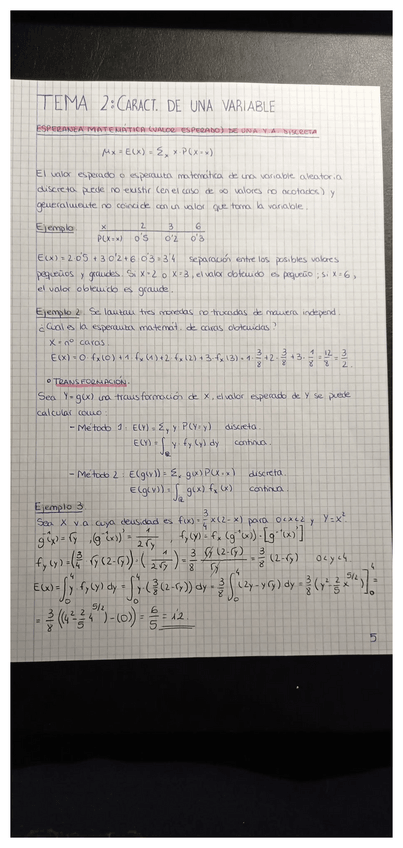 TEMA 2: CARACT. DE UNA VARIABLE
ESPERANZA MATEMÁTICA (VALOR ESPERADO) DE UNA V.A. DISCRETA
μx = E(X) = Σx x·P(X=x)
El valor esperado o esperanza matemática de una variable aleatoria
discreta puede no existir (en el caso de ∞ valores no acotados) y
generalmente no coincide con un valor que toma la variable.
Ejemplo x 2 3 6
P(X=x) 0'5 0'2 0'3
E(x) = 2·0'5 + 3·0'2 + 6·0'3 = 3'4 separación entre los posibles valores
pequeños y grandes. Si X=2 o X=3, el valor obtenido es pequeño; si X=6,
el valor obtenido es grande.
Ejemplo 2: Se lanzan tres monedas no trucadas de manera independ.
¿Cuál es la esperanza matemát. de caras obtenidas?
X = nº caras.
E(X) = 0·fx(0) + 1·fx(1) + 2·fx(2) + 3·fx(3) = 1·3/8 + 2·3/8 + 3·1/8 = 12/8 = 3/2.
○ TRANSFORMACIÓN.
Sea Y=g(x) una transformación de X, el valor esperado de Y se puede
calcular como:
- Método 1: E(Y) = Σy y P(Y=y) discreta.
E(Y) = ∫R y fy(y) dy continua.
- Método 2: E(g(x)) = Σx g(x) P(X=x) discreta.
E(g(x)) = ∫R g(x) fx(x) continua.
Ejemplo 3
Sea X v.a cuya densidad es f(x) = 3/4 x(2-x) para 0<x<2 y Y=x²
g⁻¹(x) = √y , (g⁻¹(x))' = 1/(2√y) , fy(y) = fx(g⁻¹(x))·[g⁻¹(x)']
fy(y) = (3/4 √y (2-√y))·(1/(2√y)) = 3/8 √y(2-√y)/√y = 3/8 (2-√y) 0<y<4
E(x) = ∫₀⁴ y fy(y) dy = ∫₀⁴ y·(3/8(2-√y)) dy = 3/8 ∫₀⁴ (2y-y√y) dy = 3/8 (y² - 2/5 x^(5/2))]₀⁴ =
= 3/8 ((4² - 2/5 4^(5/2)) - (0)) = 6/5 = 1'2
5